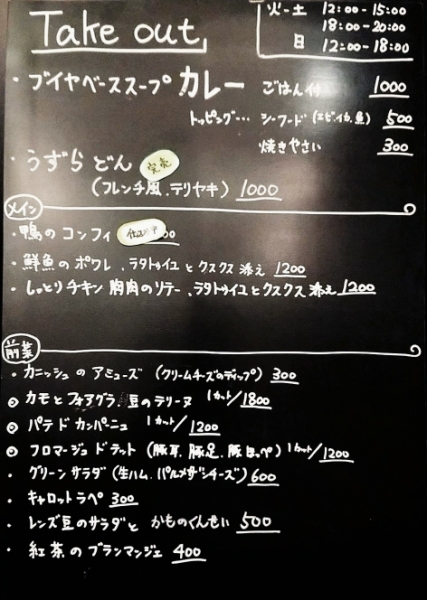 Take out
火-土 12:00-15:00
18:00-20:00
日 12:00-18:00
・ブイヤベーススープ カレー ごはん付 1000
トッピング… シーフード(エビ.イカ.魚) 500
焼きやさい 300
・うずら どん 完売
(フレンチ風、テリヤキ) 1000
メイン
・鴨のコンフィ 仕込み中 00
・鮮魚のポワレ、ラタトゥイユとクスクス添え 1200
・しっとりチキン胸肉のソテー、ラタトゥイユとクスクス添え 1200
前菜
・カニッシュのアミューズ (クリームチーズのディップ) 300
◎カモとフォアグラ.豆のテリーヌ 1カット/1800
◎パテ ド カンパーニュ 1カット/1200
◎フロマージュ ド テット (豚耳、豚足、豚ほっぺ) 1カット/1200
・グリーンサラダ(生ハム.パルメザンチーズ) 600
・キャロットラペ 300
・レンズ豆のサラダと かものくんせい 500
・紅茶のブランマンジェ 400